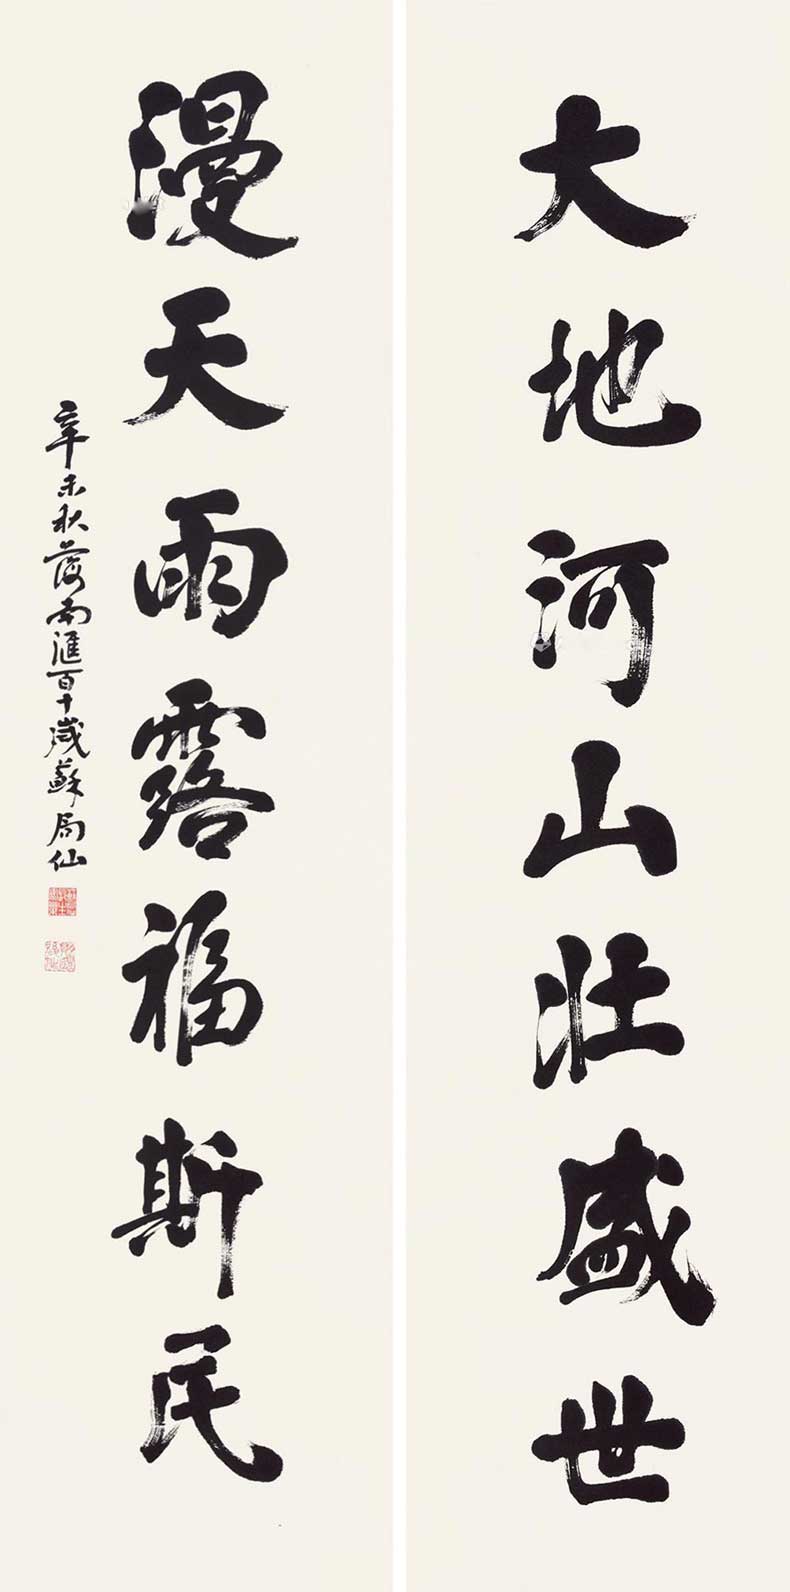 大地河山壯盛世
漫天雨露福斯民
辛未秋後南滙百十歲蘇局仙